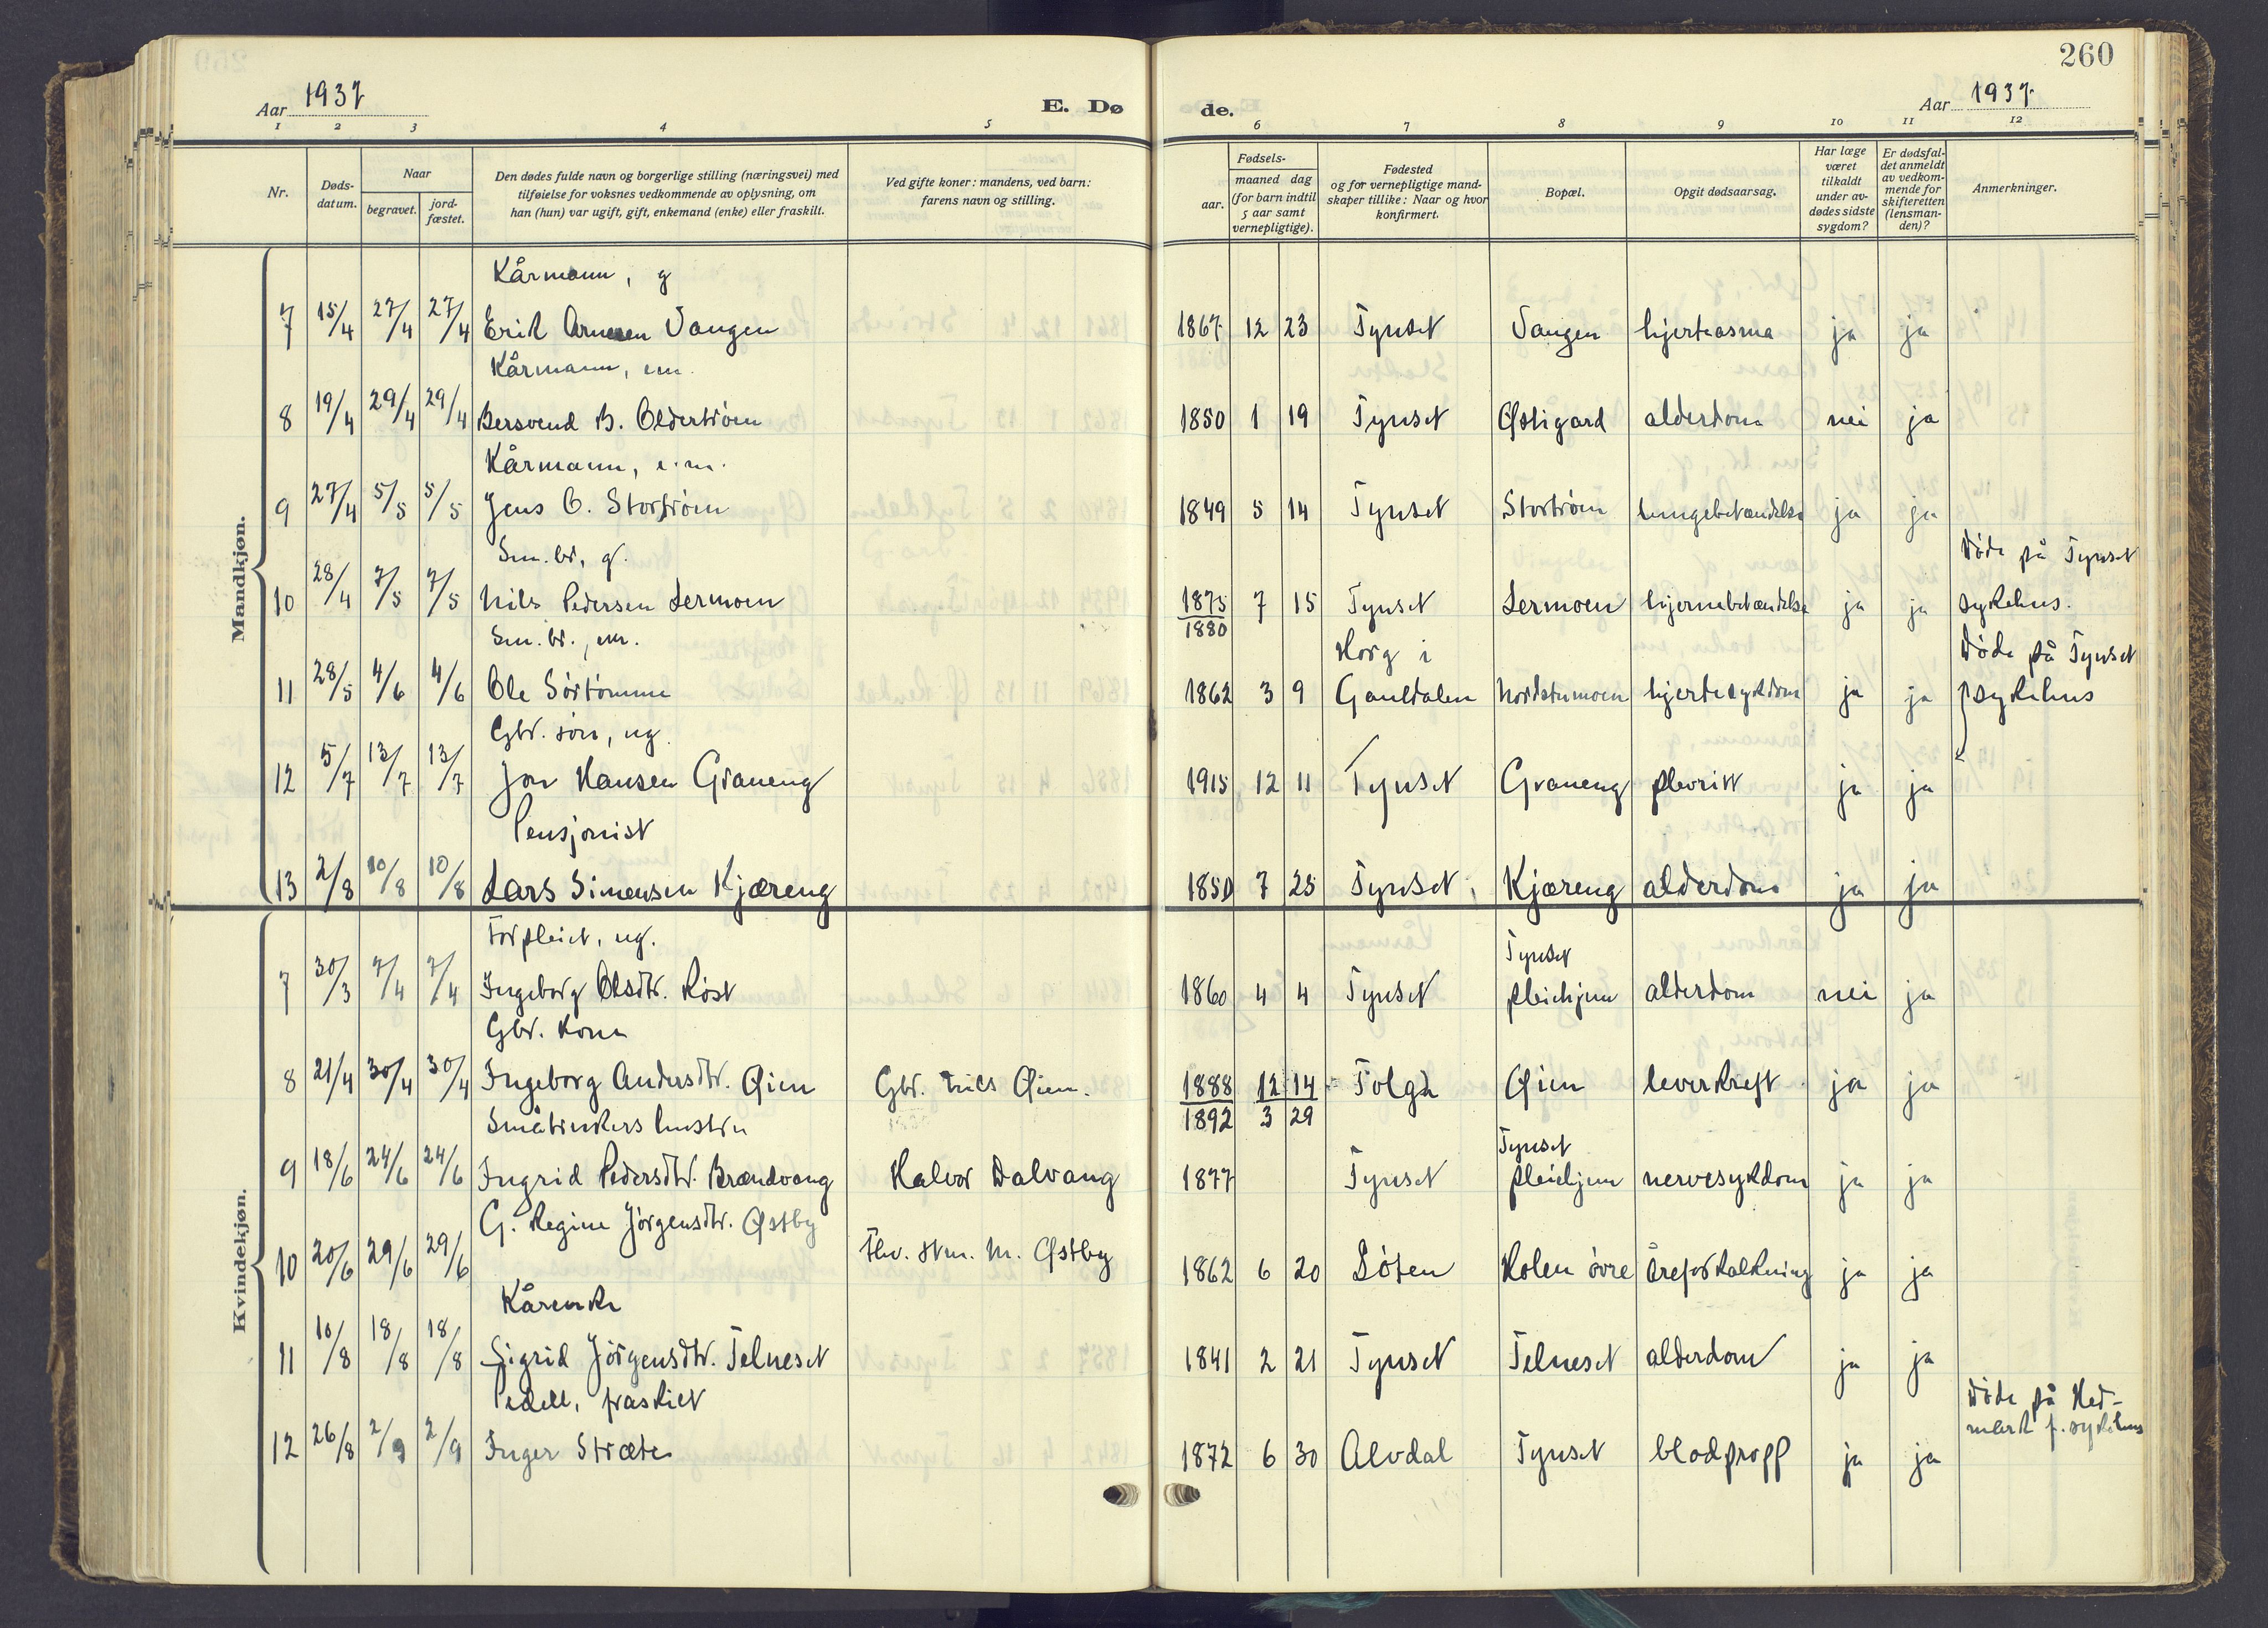 260
Aar 1937
E. Dø
de.
Aar 1937.
1 2 3 4 5 6 7 8 9 10 11 12
Nr.
Døds-
datum.
Naar
begravet.
jord-
fæstet.
Den dødes fulde navn og borgerlige stilling (næringsvei) med
tilføielse for voksnes vedkommende av oplysning, om
han (hun) var ugift, gift, enkemand (enke) eller fraskilt.
Ved gifte koner: mandens, ved barn:
farens navn og stilling.
Fødsels-
aar.
maaned dag
(for barn indtil
5 aar samt
vernepligtige).
Fødested
og for vernepligtige mand-
skaper tillike: Naar og hvor
konfirmert.
Bopæl.
Opgit dødsaarsag.
Har læge
været
tilkaldt
under av-
dødes sidste
sygdom?
Er dødsfal-
det anmeldt
av vedkom-
mende for
skifteretten
(lensman-
den)?
Anmerkninger.
Mandkjøn.
Kårmann, g
7 15/4 27/4 27/4 Erik Arnesen Vangen 1867 12 23 Tynset Vangen hjerteasma ja ja
Kårmann, em.
8 19/4 29/4 29/4 Bersvend B. Olderstrøm 1850 1 19 Tynset Østigard alderdom nei ja
Kårmann, e.m.
9 27/4 5/5 5/5 Jens O. Storstrøm 1849 5 14 Tynset Storstrøm lungebetændelse ja ja
Sm. br, g.
Døde på Tynset
10 28/4 7/5 7/5 Nils Pedersen Lermoen 1875 7 15 Tynset Lermoen hjernebetændelse ja ja sykehus.
1880
Sm. br., em. Horg i Døde på Tynset
11 28/5 4/6 4/6 Ole Sørtømme 1862 3 9 Gauldalen Nordstumoen hjertesykdom ja ja sykehus
Gbr. søn, ug.
12 5/7 13/7 13/7 Jon Hansen Graneng 1915 12 11 Tynset Graneng plevritt ja ja
Pensjonist
13 2/8 10/8 10/8 Lars Simensen Kjæreng 1850 7 25 Tynset Kjæreng alderdom ja ja
Kvindekjøn.
Forpleiet, ug. Tynset
7 30/3 7/4 7/4 Ingeborg Olsdtr. Røst 1860 4 4 Tynset pleiehjem alderdom nei ja
Gbr. kone
8 21/4 30/4 30/4 Ingeborg Andersdtr. Øien Gbr. Nils Øien. 1888 12 14 Tolga Øien leverkreft ja ja
1892 3 29
Småbrukers hustru Tynset
9 18/6 24/6 24/6 Ingrid Pedersdtr. Brændvang Halvor Dalvang 1877 Tynset pleiehjem nervesykdom ja ja
G. Regine Jørgensdtr. Østby
10 20/6 29/6 29/6 Fhv. stm. M. Østby 1862 6 20 Løten Holen øvre Åreforkalkning ja ja
Kårenke
11 10/8 18/8 18/8 Sigrid Jørgensdtr. Telneset 1841 2 21 Tynset Telneset alderdom ja ja
Pedell, fraskilt Døde på Hed-
mark f. sykehus
12 26/8 2/9 2/9 Inger Stræte 1872 6 30 Alvdal Tynset blodpropp ja ja